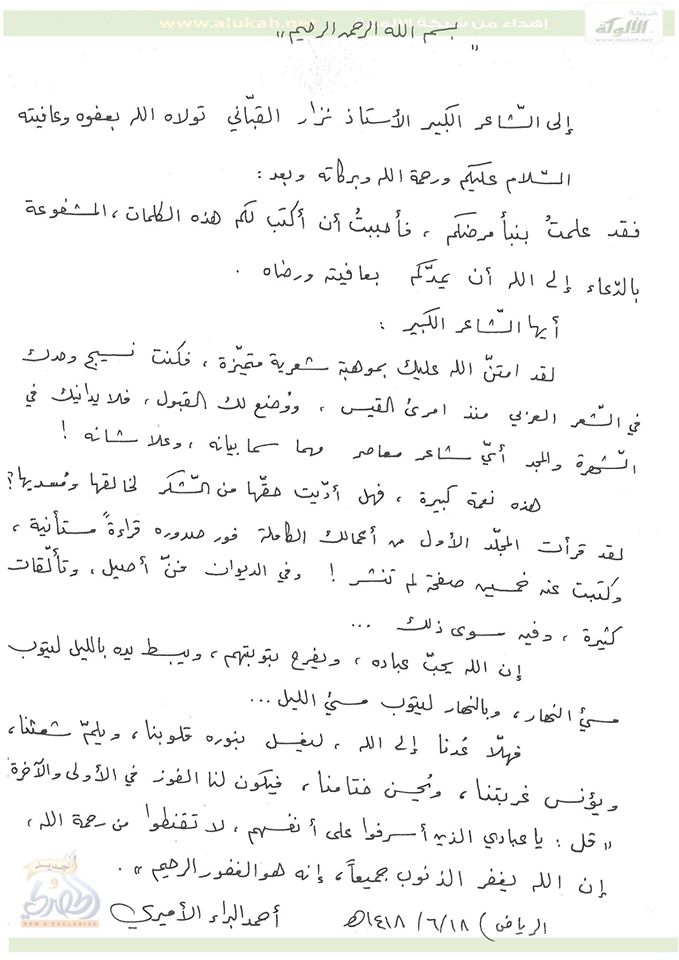 إهداء من شبكة الألوكة www.alukah.net
شبكة
الألوكة
www.alukah.net
"بسم الله الرحمن الرحيم"
إلى الشّاعر الكبير الأستاذ نزار القبّاني تولاه الله بعفوه وعافيته
السّلام عليكم ورحمة الله وبركاته وبعد :
فقد علمتُ بنبأ مرضكم ، فأحببتُ أن أكتب لكم هذه الكلمات ، المشفوعة
بالدّعاء إلى الله أن يمدّكم بعافيته ورضاه .
أيها الشّاعر الكبير :
لقد امتنّ الله عليك بموهبة شعرية متميّزة ، فكنت نسيج وحدك
في الشّعر العربي منذ امرئ القيس ، ووُضع لك القبول ، فلا يدانيك في
الشّهرة والمجد أيّ شاعر معاصر مهما سما بيانه ، وعلا شانه !
هذه نعمة كبيرة ، فهل أدّيت حقّها من الشّكر لخالقها ومُسديها؟
لقد قرأت المجلّد الأول من أعمالك الكاملة فور صدوره قراءةً مستأنية ،
وكتبت عنه خمسين صفحة لم تنشر ! وفي الديوان فنّ أصيل ، وتألّقات
كثيرة ، وفيه سوى ذلك ...
إن الله يحبّ عباده ، ويفرح بتوبتهم ، ويبسط يده بالليل ليتوب
مسيء النهار ، وبالنهار ليتوب مسيء الليل ...
فهلّا عُدنا إلى الله ، ليغسل بنوره قلوبنا ، ويلمّ شعثنا ،
ويؤنس غربتنا ، ويُحسن ختامنا ، فيكون لنا الفوز في الأولى والآخرة
"قل : يا عبادي الذين أسرفوا على أنفسهم ، لا تقنطوا من رحمة الله ،
إن الله يغفر الذنوب جميعاً ، إنه هو الغفور الرحيم" .
الرياض ) ١٨/٦/١٤١٨هـ أحمد البراء الأميري
NEW & EXCLUSIVE